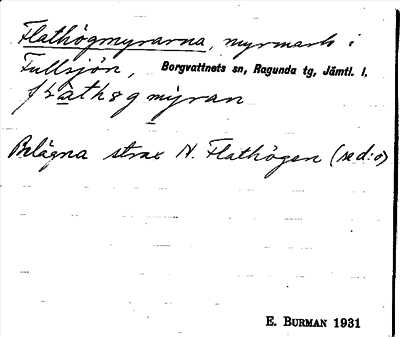 Flathögmyrarna, myrmark i
Fullsjön, Borgvattnets sn, Ragunda tg, Jämtl. l.
Belägna strax N. Flathögen (se d:o)
E. BURMAN 1931